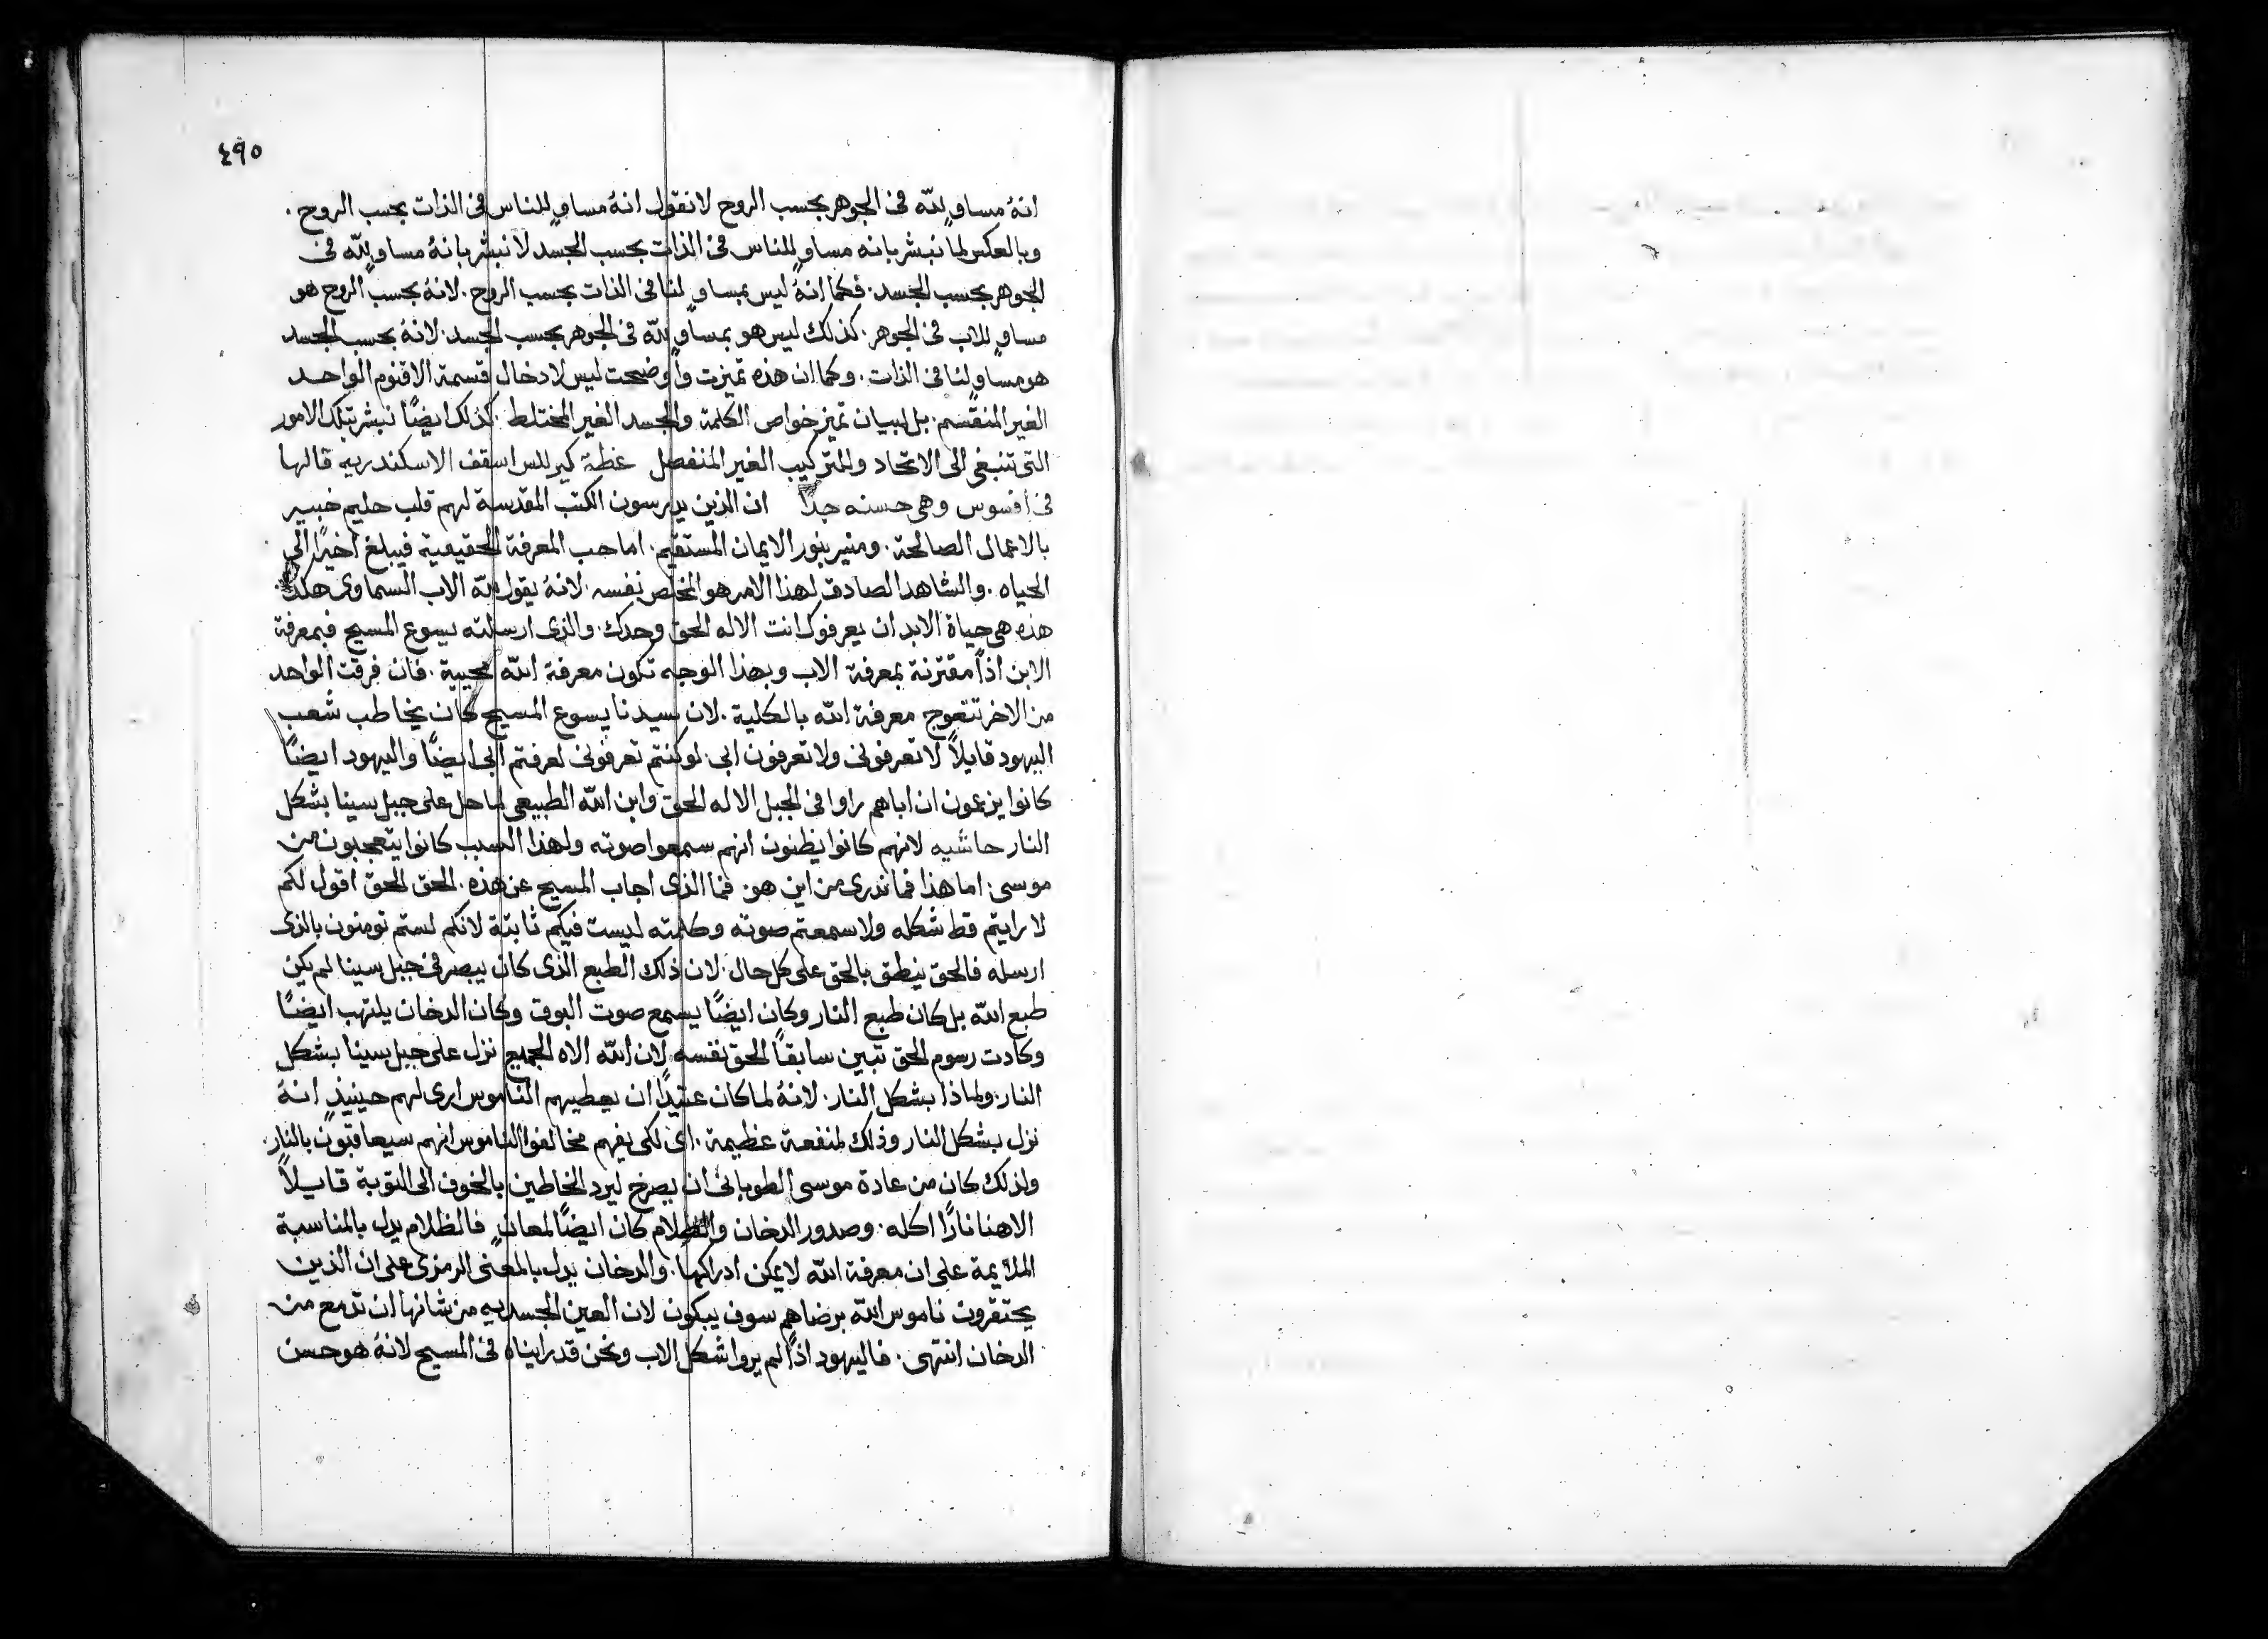 ٤٩٥
انهُ مساوٍ لله فى الجوهر بحسب الروح لا نقول انهُ مساوٍ للناس فى الذات بحسب الروح .
وبالعكس لما نبشر بانه مساوٍ للناس فى الذات بحسب الجسد لا نبشر بانهُ مساوٍ لله فى
الجوهر بحسب الجسد . فكما انهُ ليس بمساوٍ لنا فى الذات بحسب الروح . لانهُ بحسب الروح هو
مساوٍ للاب فى الجوهر . كذلك ليس هو بمساوٍ لله فى الجوهر بحسب الجسد . لانهُ بحسب الجسد
هو مساوٍ لنا فى الذات . وكما ان هذه تميزت واوضحت ليس لادخال قسمة الاقنوم الواحد
الغير المنقسم . بل لبيان تميز خواص الكلمة والجسد الغير المختلط . كذلك ايضًا نبشر بتلك الامور
التى تنبغى الى الاتحاد والتركيب الغير المنفصل عظة كيرللس اسقف الاسكندريه قالها
فى افسوس وهى حسنه جدًا ان الذين يدرسون الكتب المقدسة لهم قلب حليم خبير
بالاعمال الصالحة . ومنير بنور الايمان المستقيم . اما حب المعرفة الحقيقية فيبلغ اخيرًا الى
الحياه . والشاهد الصادق لهذا الامر هو المخلص نفسه . لانهُ يقول لله الاب السماوى هكذا .
هذه هى حياة الابد ان يعرفوك انت الاله الحق وحدك . والذى ارسلته يسوع المسيح فبمعرفة
الابن اذًا مقترنة بمعرفة الاب وبهذا الوجه تكون معرفة الله محيية . فان فرقت الواحد
من الاخر تتعوج معرفة الله بالكلية . لان سيدنا يسوع المسيح كان يخاطب شعب
اليهود قايلاً لا تعرفونى ولا تعرفون ابى . لو كنتم تعرفونى لعرفتم ابى ايضًا واليهود ايضًا
كانوا يزعمون ان اباهم راوا فى الجبل الاله الحق وابن الله الطبيعى لما حل على جبل سينا بشكل
النار حاشيه لانهم كانوا يظنون انهم سمعوا صوته ولهذا السبب كانوا يتعجبون من
موسى . اما هذا فما ندرى من اين هو . فما الذى اجاب المسيح عن هذه . الحق الحق اقول لكم
لا رايتم قط شكله ولا سمعتم صوته وكلمته ليست فيكم ثابتة لانكم لستم تومنون بالذى
ارسله فالحق ينطق بالحق على كل حال . لان ذلك الطبع الذى كان يبصر فى جبل سينا لم يكن
طبع الله بل كان طبع النار وكان ايضًا يسمع صوت البوق وكان الدخان يلتهب ايضًا
وكادت رسوم الحق تبين سابقًا الحق نفسه لان الله الاه الجميع نزل على جبل سينا بشكل
النار . ولماذا بشكل النار . لانهُ لما كان عتيدًا ان يعطيهم الناموس ارى لهم حينيذٍ انهُ
نزل بشكل النار وذلك لمنفعة عظيمة . اى لكى يفهم مخالفوا الناموس انهم سيعاقبون بالنار .
ولذلك كان من عادة موسى الطوبانى ان يصرخ ليرد الخاطين بالخوف الى التوبة قايلاً
الاهنا نارًا اكله . وصدور الدخان والظلام كان ايضًا لمعانٍ فالظلام يدل بالمناسبة
الملايمة على ان معرفة الله لا يمكن ادراكها . والدخان يدل بالمعنى الرمزى على ان الذين
يحتقرون ناموس الله برضاهم سوف يبكون لان العين الجسديه من شانها ان تدمع من
الدخان انتهى . فاليهود اذًا لم يروا شكل الاب ونحن قد رايناه فى المسيح لانهُ هو حسن